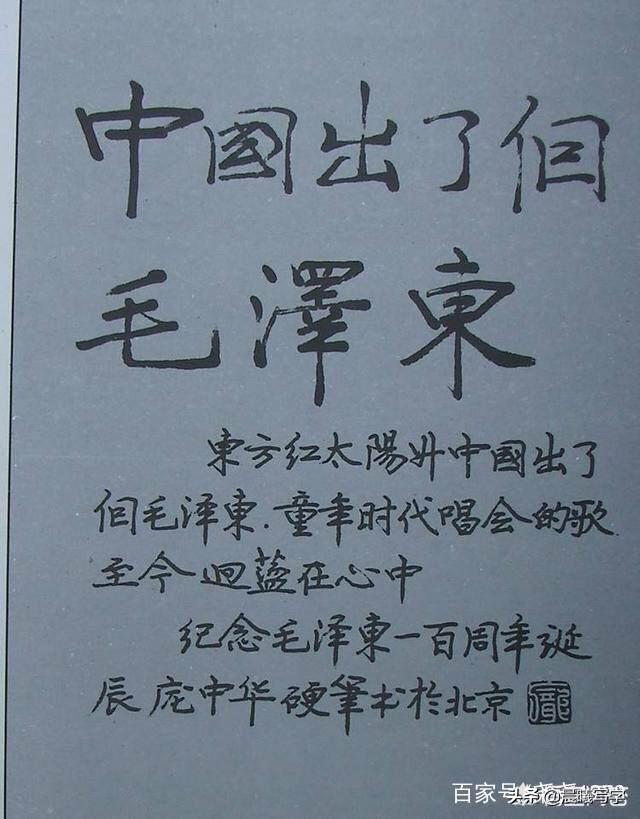 中國出了個
毛澤東
東方红太陽升中國出了
個毛泽東.童年时代唱会的歌
至今迴蕩在心中
纪念毛泽東一百周年诞
辰庞中华硬筆书於北京
百家号
头条@晨曦写字